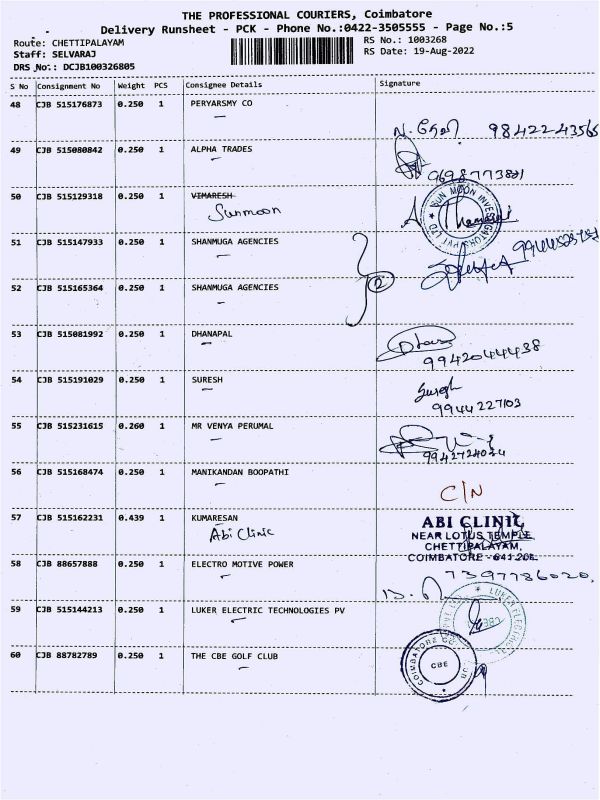 THE PROFESSIONAL COURIERS, Coimbatore
Delivery Runsheet - PCK - Phone No.:0422-3505555 - Page No.:5
Route: CHETTIPALAYAM RS No.: 1003268
Staff: SELVARAJ RS Date: 19-Aug-2022
DRS No.: DCJB100326805
S No Consignment No Weight PCS Consignee Details Signature
48 CJB 515176873 0.250 1 PERYARSMY CO
9842243565
49 CJB 515080842 0.250 1 ALPHA TRADES
50 CJB 515129318 0.250 1 VIMARESH
Sunmoon
51 CJB 515147933 0.250 1 SHANMUGA AGENCIES
2
52 CJB 515165364 0.250 1 SHANMUGA AGENCIES
53 CJB 515081992 0.250 1 DHANAPAL
9942044438
54 CJB 515191029 0.250 1 SURESH
Suresh
9944227103
55 CJB 515231615 0.260 1 MR VENYA PERUMAL
56 CJB 515168474 0.250 1 MANIKANDAN BOOPATHI
C/N
57 CJB 515162231 0.439 1 KUMARESAN
Abi Clinic
ABI CLINIC,
NEAR LOTUS TEMPLE
CHETTIPALAYAM,
COIMBATORE - 641 201.
58 CJB 88657888 0.250 1 ELECTRO MOTIVE POWER
7397786020,
59 CJB 515144213 0.250 1 LUKER ELECTRIC TECHNOLOGIES PV
LUKER ELECTRICAL
CBE
60 CJB 88782789 0.250 1 THE CBE GOLF CLUB
CBE